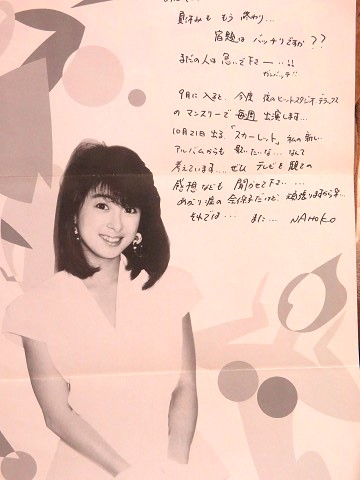 夏休みも もう 終わり...
宿題は バッチリですか??
まだの人は 急いで下さーー..!!
ガンバッテ!!
9月に 入ると、今度 夜のヒットスタジオデラックス
の マンスリーで 毎週 出演します...
10月21日 出る「スカーレット」私の新しい
アルバムからも 歌いたいな.... なんて
考えています.... ぜひ テレビを 観ての
感想なども 聞かせて下さ.. ....
あがり症の 奈保子だけど 頑張りますから..
それでは... また... NAHOKO